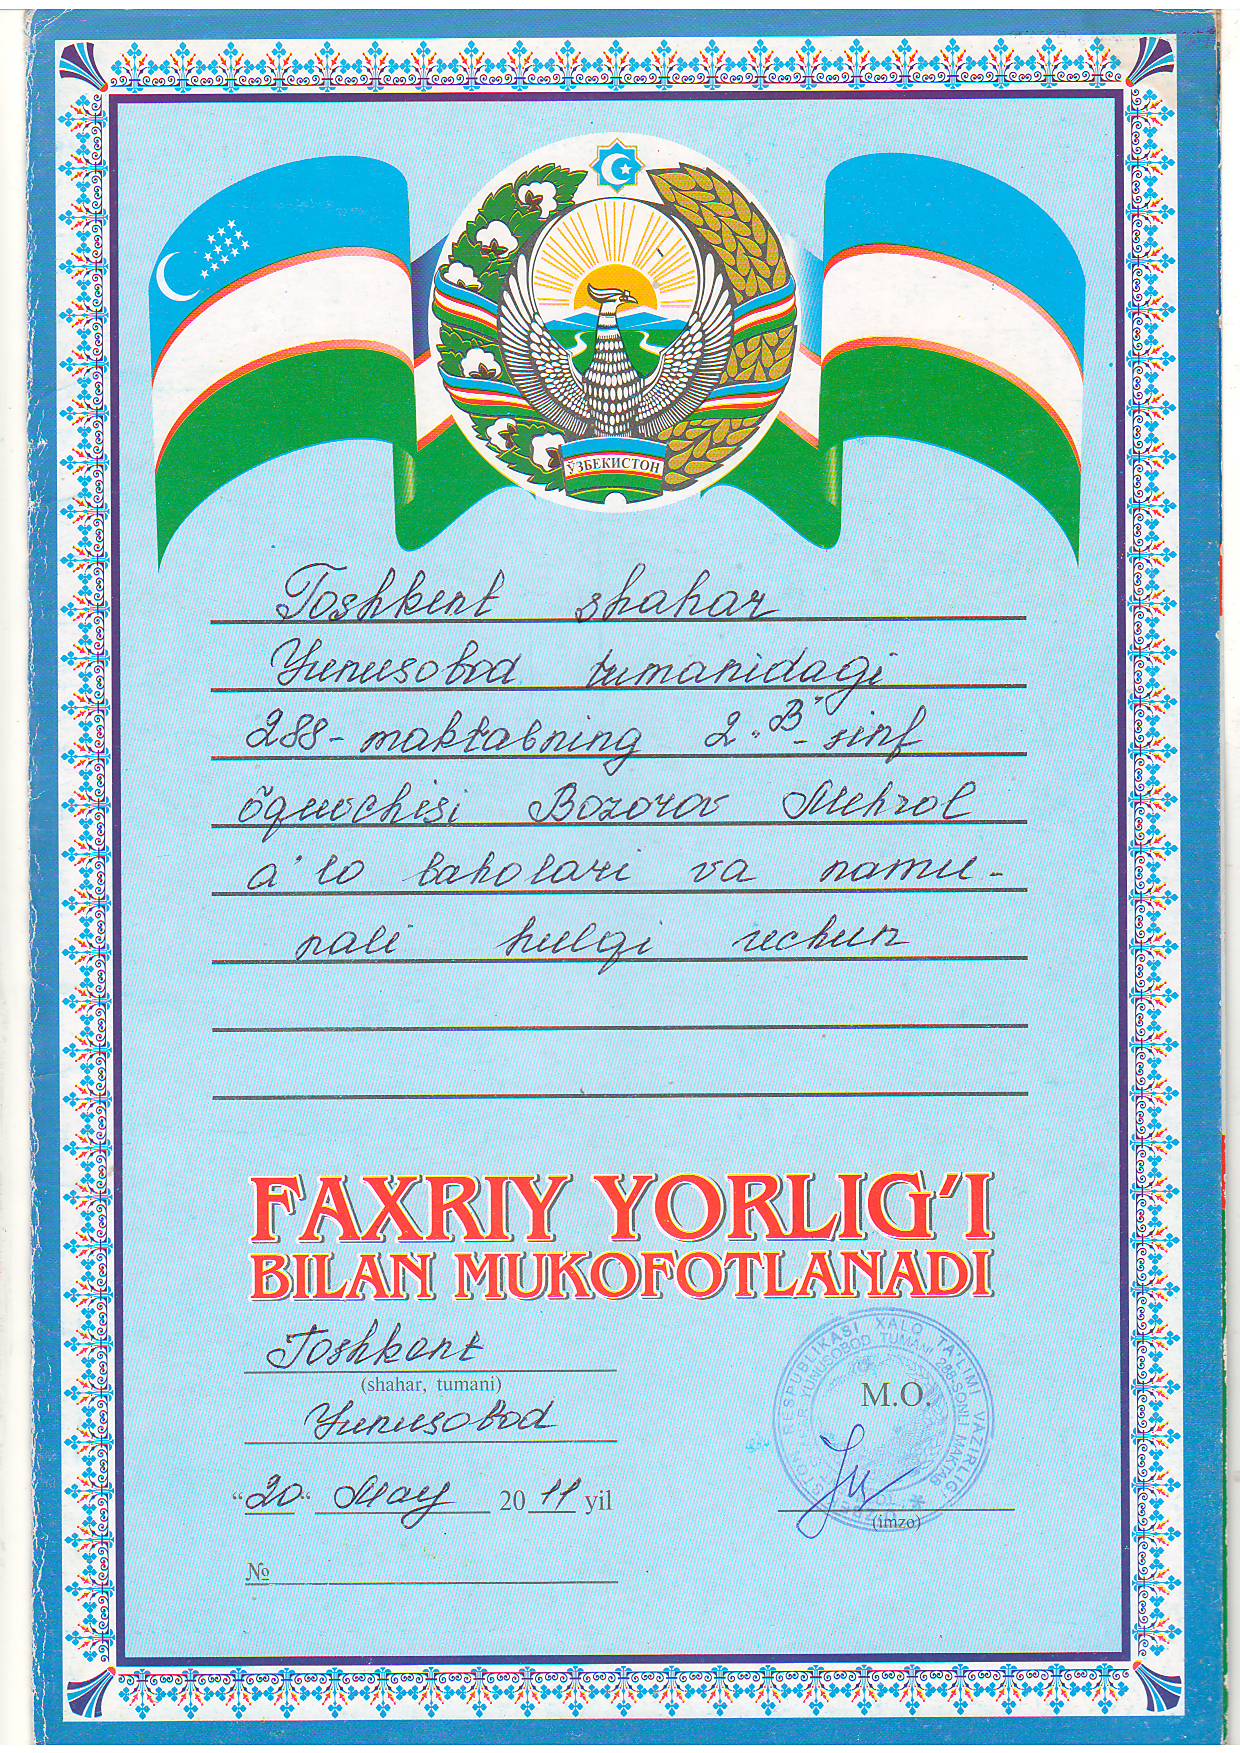 ЎЗБЕКИСТОН
Toshkent shahar
Yunusobod tumanidagi
288-maktabning 2-"B"-sinf
õquvchisi Bozorov Mehrol
a'lo baholari va namu-
nali hulqi uchun
FAXRIY YORLIG'I
BILAN MUKOFOTLANADI
Toshkent
(shahar, tumani)
Yunusobod
"20" May 2011 yil
№
XALQ TA'LIMI VAZIRLIGI
YUNUSOBOD TUMANI 288-SONLI MAKTAB
M.O.
(imzo)